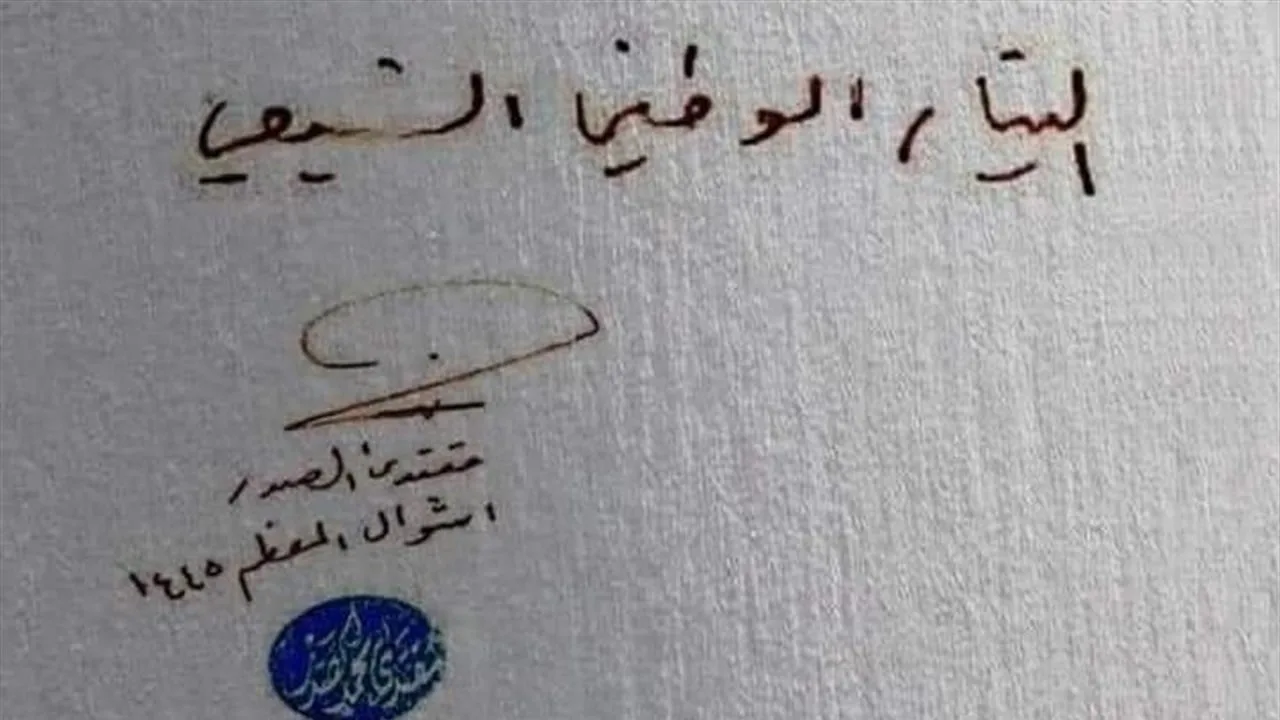 التيار الوطني الشيعي
مقتدى الصدر
١ شوال المعظم ١٤٤٥
مقتدى محمد الصدر